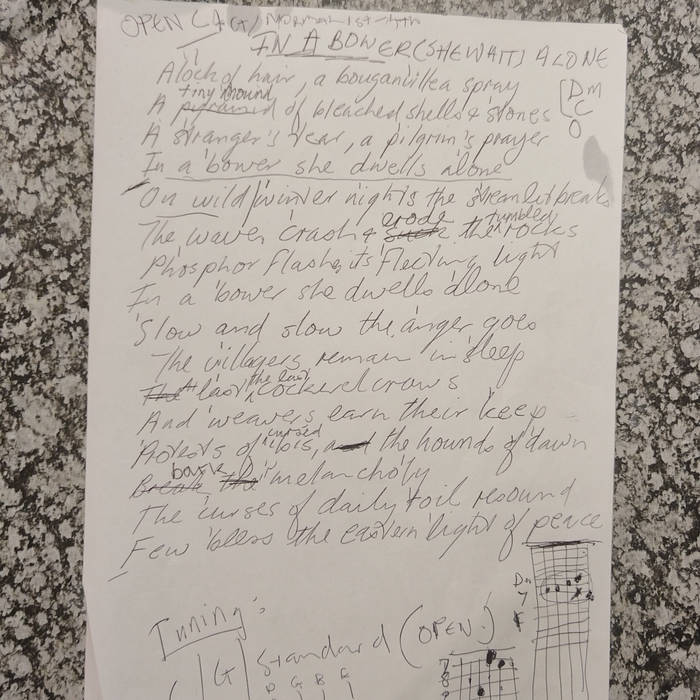 OPEN C A G / NORMAL 1st - 4th
IN A BOWER (SHE WAITS) ALONE
A lock of hair, a bouganvillea spray
tiny mound
A pyramid of bleached shells & stones
[Dm
C
O
A stranger's tear, a pilgrim's prayer
In a bower she dwells alone
On wild winter nights the breaks
erode tumbled
The waves crash & the rocks
Phosphor flashes its fleeting light
In a bower she dwells alone
Slow and slow the anger goes
The villagers remain in sleep
the last
The last cockerel crows
And weavers earn their keep
cursed
of ibis, and the hounds of dawn
bark
Break the melancholy
The curses of daily toil resound
Few bless the eastern light of peace
Tuning:
Standard (OPEN.)
C G D G B E
Dm
7
F
7
8
9